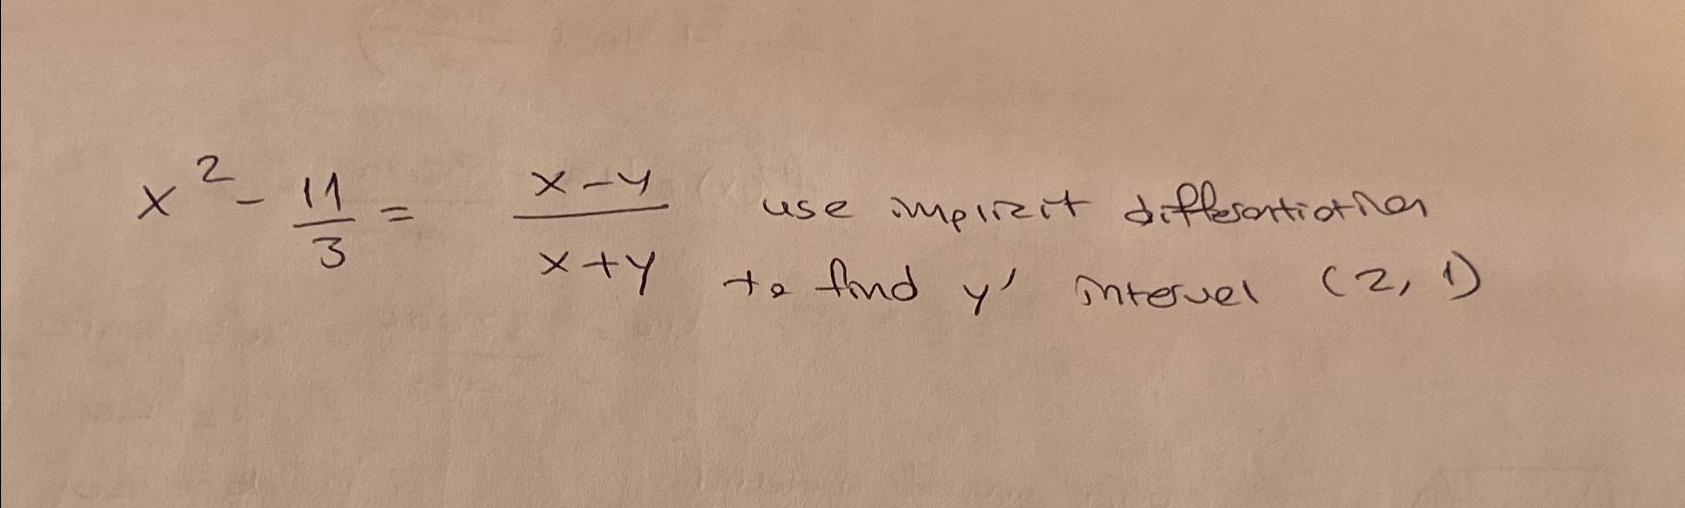 x² - 11/3 = x-y/x+y use implicit differentiation
to find y' interval (2, 1)